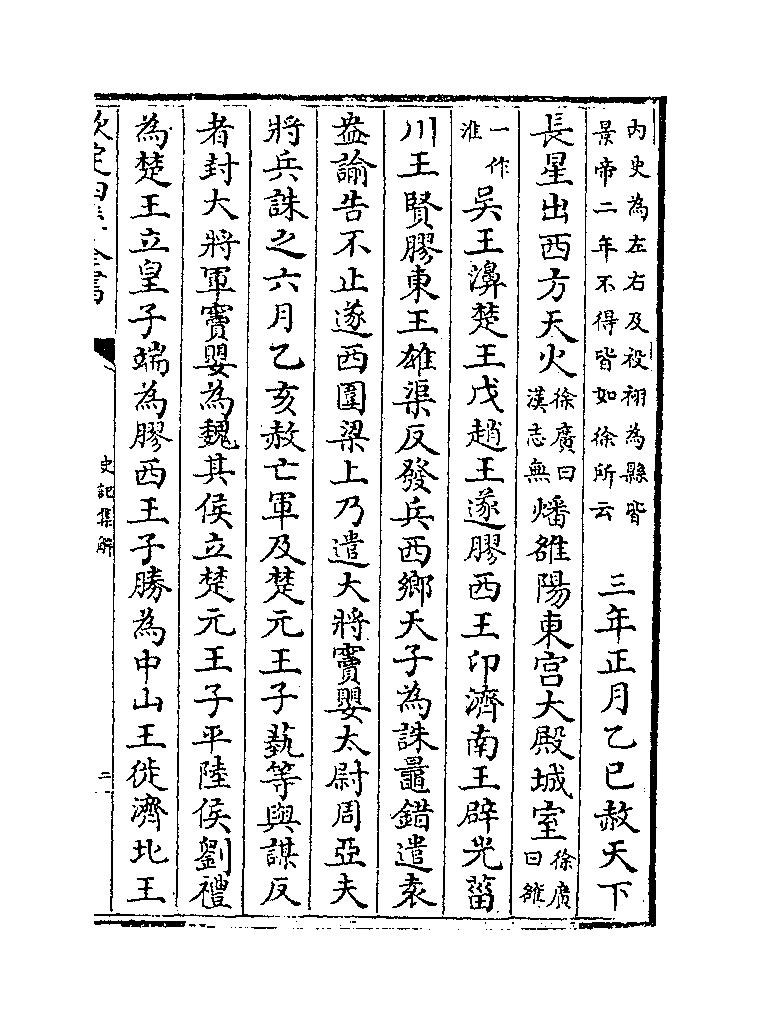 内史為左右及祋祤為縣皆
景帝二年不得皆如徐所云
三年正月乙巳赦天下
長星出西方天火徐廣曰漢志無燔雒陽東宫大殿城室徐廣曰雒
一作淮吴王濞楚王戊趙王遂膠西王卬濟南王辟光菑
川王賢膠東王雄渠反發兵西鄉天子為誅鼂錯遣袁
盎諭告不止遂西圍梁上乃遣大將竇嬰太尉周亞夫
將兵誅之六月乙亥赦亡軍及楚元王子蓺等與謀反
者封大將軍竇嬰為魏其侯立楚元王子平陸侯劉禮
為楚王立皇子端為膠西王子勝為中山王徙濟北王
欽定四庫全書
史記集解